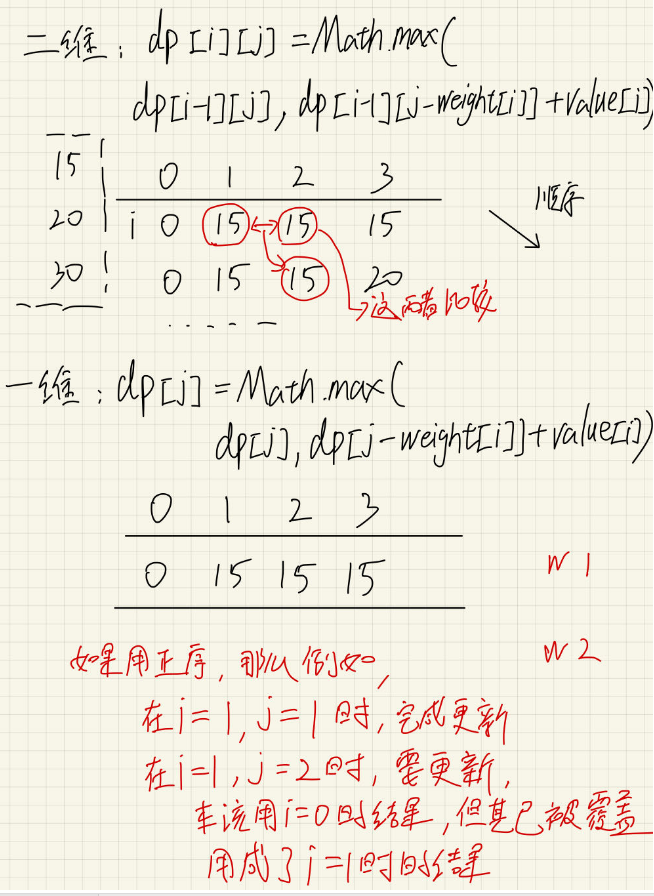 二维：dp[i][j] = Math.max(
dp[i-1][j], dp[i-1][j-weight[i]]+value[i])
15
0 1 2 3
顺序
20 i 0 15 15 15
30 0 15 15 20
这两者比较
一维：dp[j] = Math.max(
dp[j], dp[j-weight[i]]+value[i])
0 1 2 3
0 15 15 15
w 1
如果用正序，那么例如，
w 2
在i=1, j=1时，完成更新
在i=1, j=2时，需更新，
本该用i=0时结果，但其已被覆盖
用成了i=1时的结果